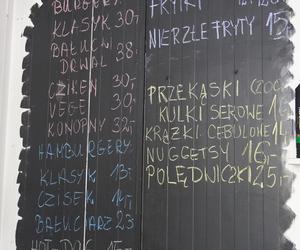 BURGERY
KLASYK 30,-
BAŁUCKI
DRWAL 38,-
CZIKEN 30,-
VEGE 30,-
KONOPNY 32,-
HAMBURGERY
KLASYK 13,-
CZISEK 14,-
BAŁUCIARZ 23
HOT-DOG 15,-
FRYTKI
NIERZŁE FRYTY 15,-
PRZEKĄSKI (200G
KULKI SEROWE 16
KRĄŻKI CEBULOWE 1
NUGGETSY 16,-
POLĘDWICZKI 25,-